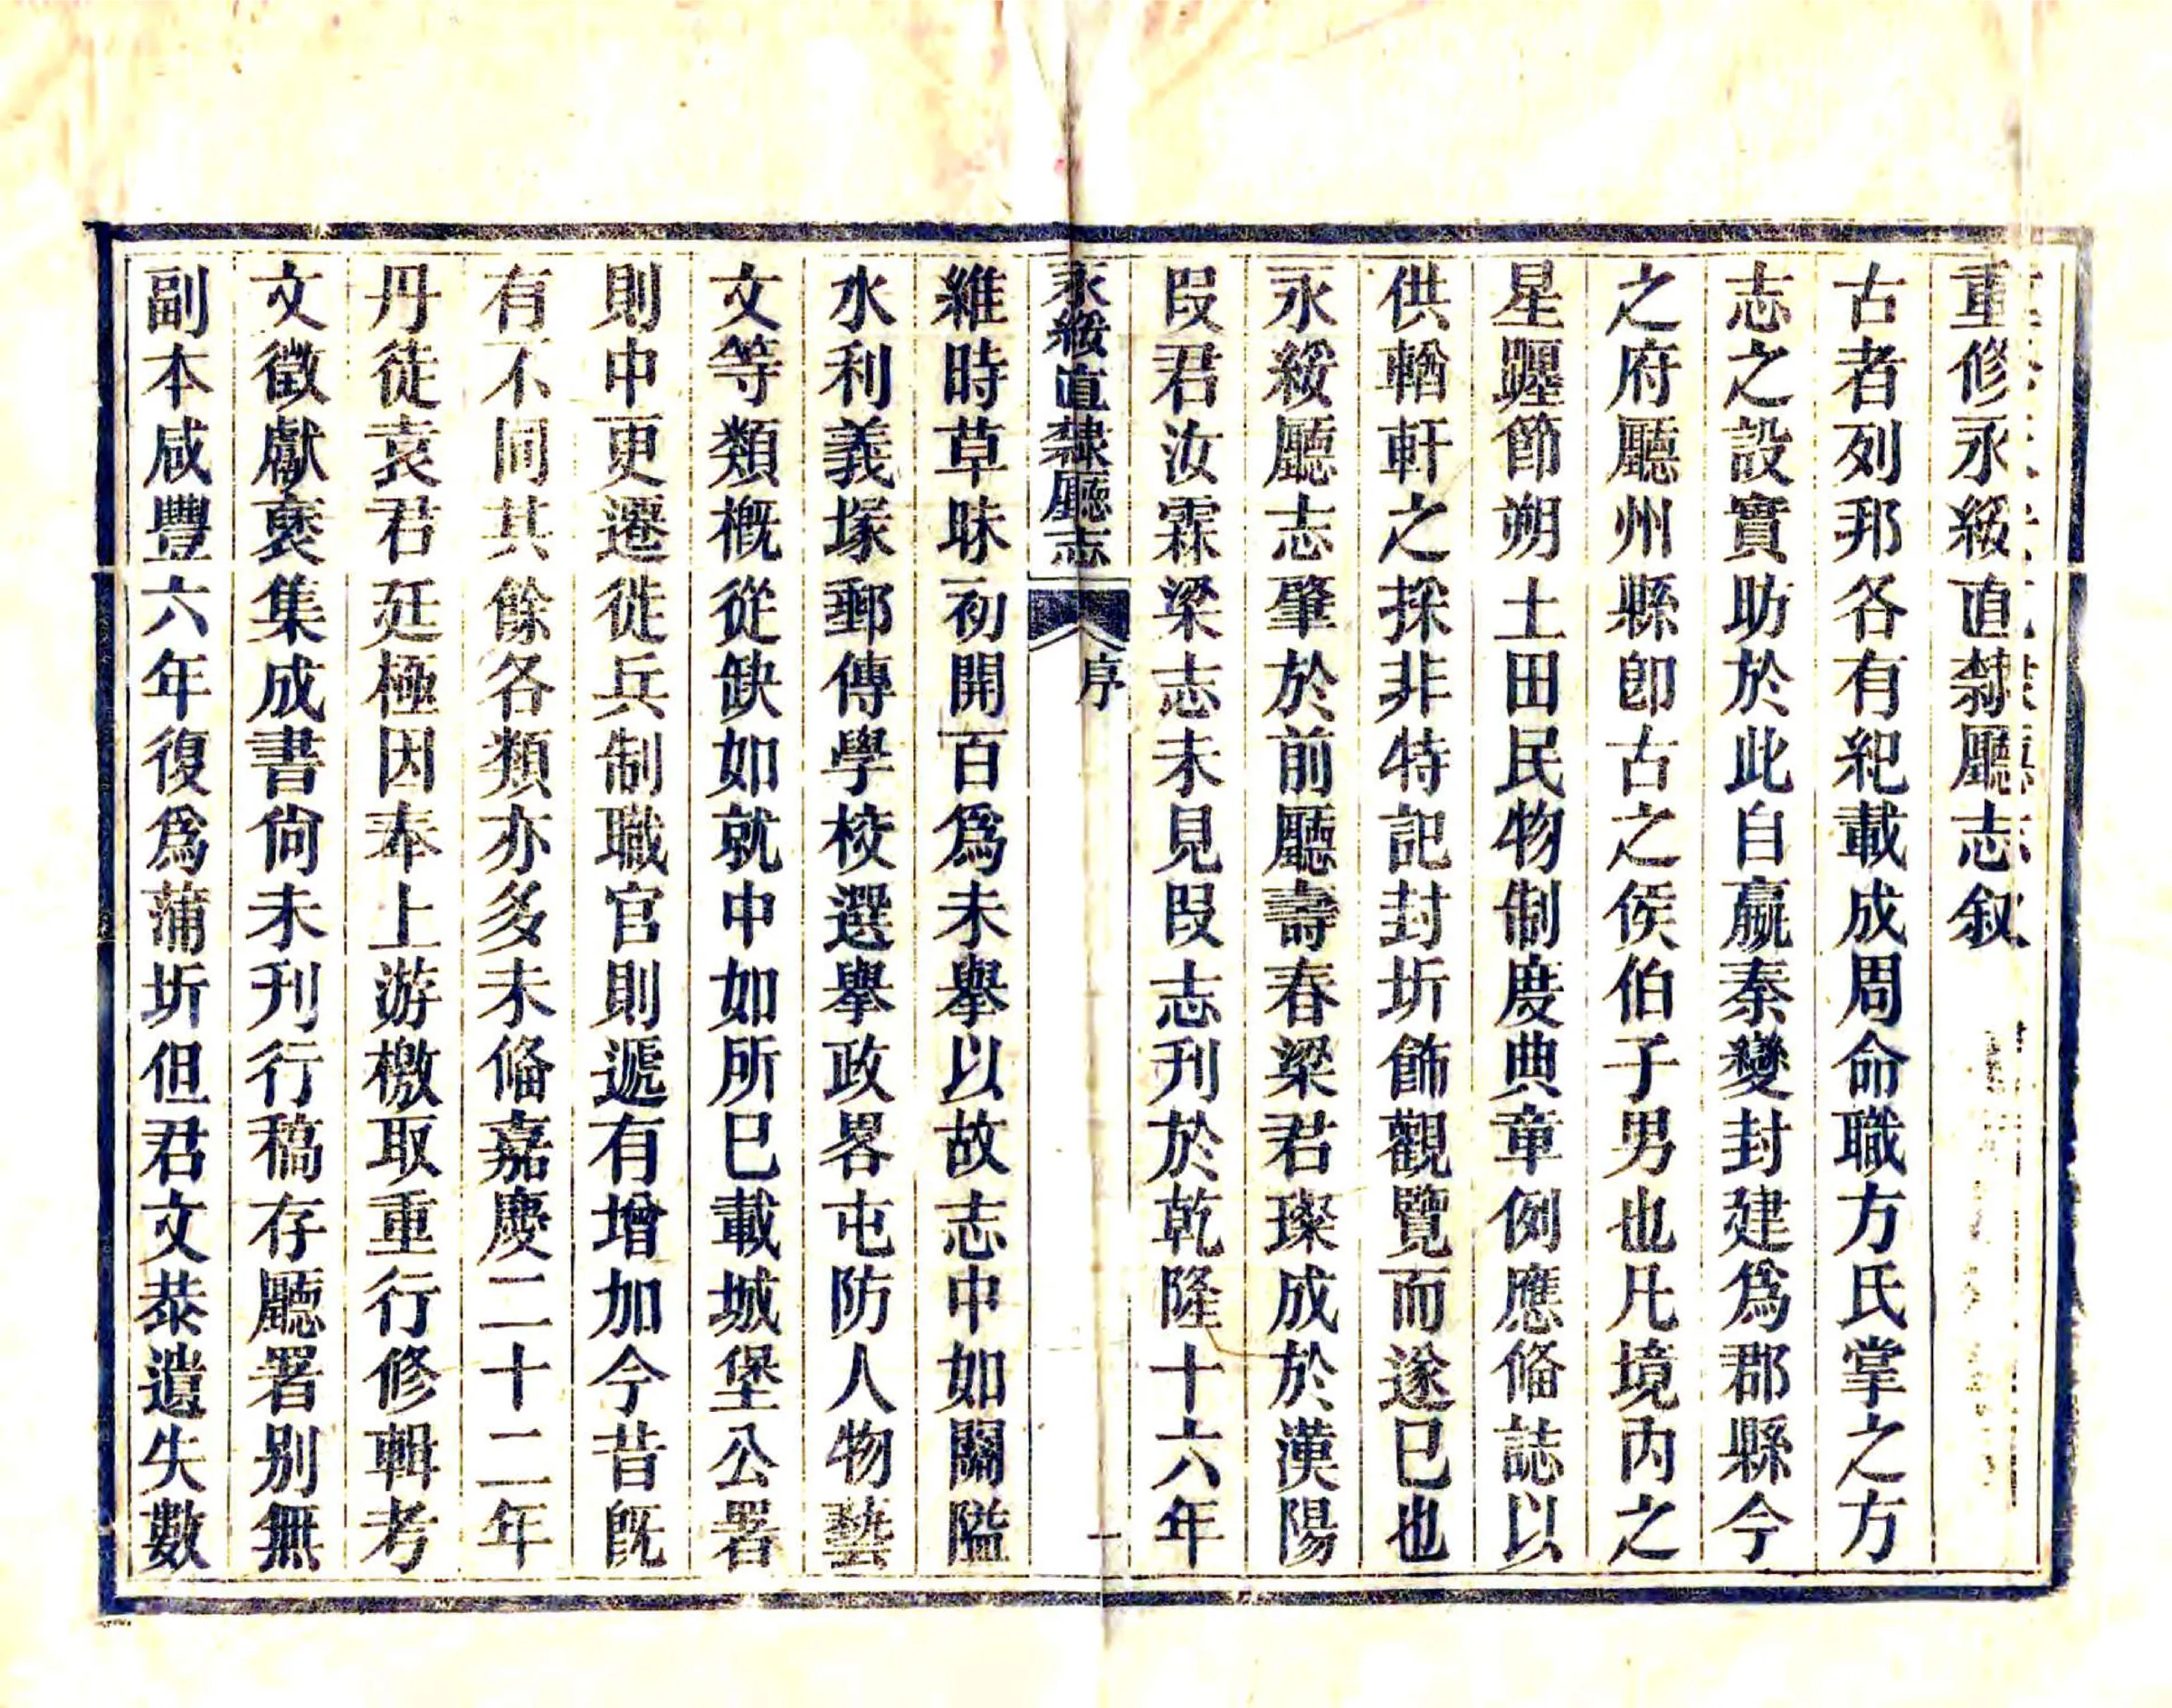 重修永綏直隸廳志叙
古者列邦各有紀載成周命職方氏掌之方
志之設實昉於此自嬴秦變封建爲郡縣今
之府廳州縣卽古之侯伯子男也凡境內之
星躔節朔土田民物制度典章例應俻誌以
供輶軒之採非特記封圻飾觀覽而遂已也
永綏廳志肇於前廳壽春梁君璨成於漢陽
段君汝霖梁志未見段志刊於乾隆十六年
永綏直隸廳志 序 一
維時草昧初開百爲未舉以故志中如關隘
水利義塚郵傳學校選舉政畧屯防人物藝
文等類槪從缺如就中如所已載城堡公署
則中更遷徙兵制職官則遞有增加今昔旣
有不同其餘各類亦多未俻嘉慶二十二年
丹徒袁君廷極因奉上游檄取重行修輯考
文徵獻裒集成書尙未刊行稿存廳署別無
副本咸豐六年復爲蒲圻但君文恭遺失數